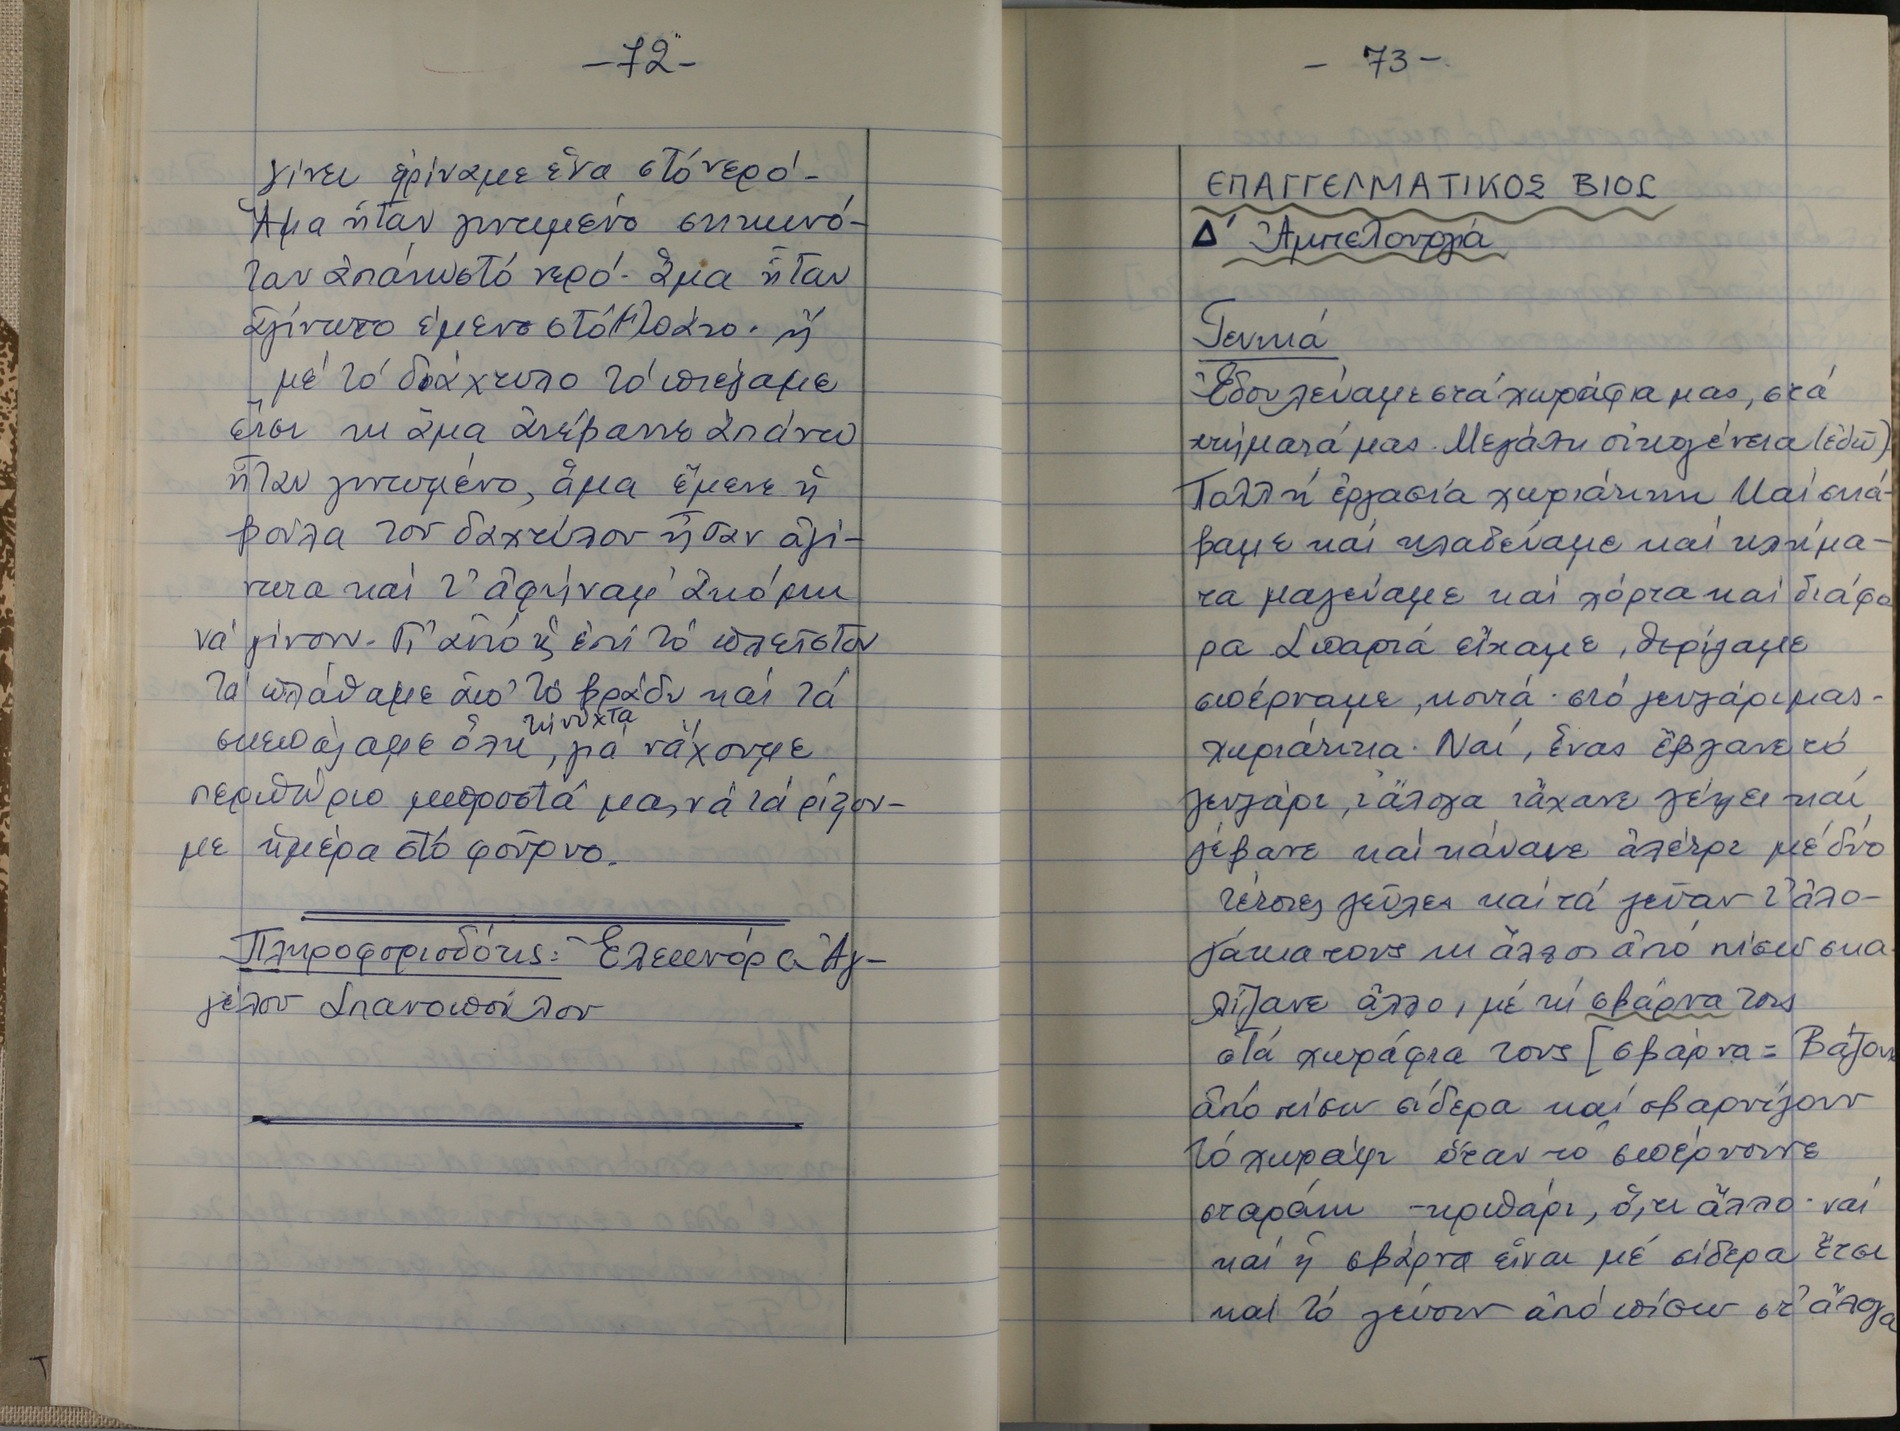 -72-
γίνει ρίναμε ἕνα στό νερό-
Ἅμα ἦταν γινωμένο σηκωνό-
ταν ἀπάνω στό νερό. Ἅμα ἦταν
ἀγίνωτο ἔμενε στό πάτο. ἤ
μέ τό δάχτυλο τό πιέζαμε
ἔτσι κι ἅμα ἀνέβαινε ἀπάνω
ἦταν γινωμένο, ἅμα ἔμενε ἡ
βούλα τοῦ δαχτύλου ἦταν ἀγί-
νωτα καί τ' ἀφήναμ' ἀκόμη
νά γίνουν. Γι' αὐτό κι ἐπί τό πλεῖστον
τά πλάθαμε ἀπ' τό βράδυ καί τά
σκεπάζαμε ὅλη τή νύχτα, γιά νἄχουμε
περιθώριο μπροστά μας νά τά ρίξου-
με ἡμέρα στό φοῦρνο.
Πληροφοριοδότης: Ἐλεωνόρα Ἀγ-
γέλου Σπανοπούλου
- 73 -
ΕΠΑΓΓΕΛΜΑΤΙΚΟΣ ΒΙΟΣ
Δ' Ἀμπελουργία
Γενικά
Ἐδουλεύαμε στά χωράφια μας, στά
κτήματά μας. Μεγάλη οἰκογένεια (ἐδῶ).
Πολλή ἐργασία χωριάτικη καί σκά-
βαμε καί κλαδεύαμε καί κλήμα-
τα μαζεύαμε καί χόρτα καί διάφο
ρα Σπαρτά εἴχαμε, θερίζαμε
σπέρναμε, κοντά στό ζευγάρι μας-
χωριάτικα. Ναί, ἕνας ἔβγανε τό
ζευγάρι, τ' ἄλογα τἄχανε ζέψει καί
ζέβανε καί κάνανε ἀλέτρι μέ δύο
τέτοιες ζεῦλες καί τά ζεῦαν τ' ἀλο-
γάκια τους κι ἄλλοι ἀπό πίσω σκα
λίζανε ἄλλο, μέ τή σβάρνα τους
στά χωράφια τους [σβάρνα = Βάζουν
ἀπό πίσω σίδερα καί σβαρνίζουν
τό χωράφι ὅταν τό σπέρνουνε
σταράκι - κριθάρι, ὅ,τι ἄλλο. ναί
καί ἡ σβάρνα εἶναι μέ σίδερα ἔτσι
καί τό ζεύουν ἀπό πίσω στ' ἄλογα